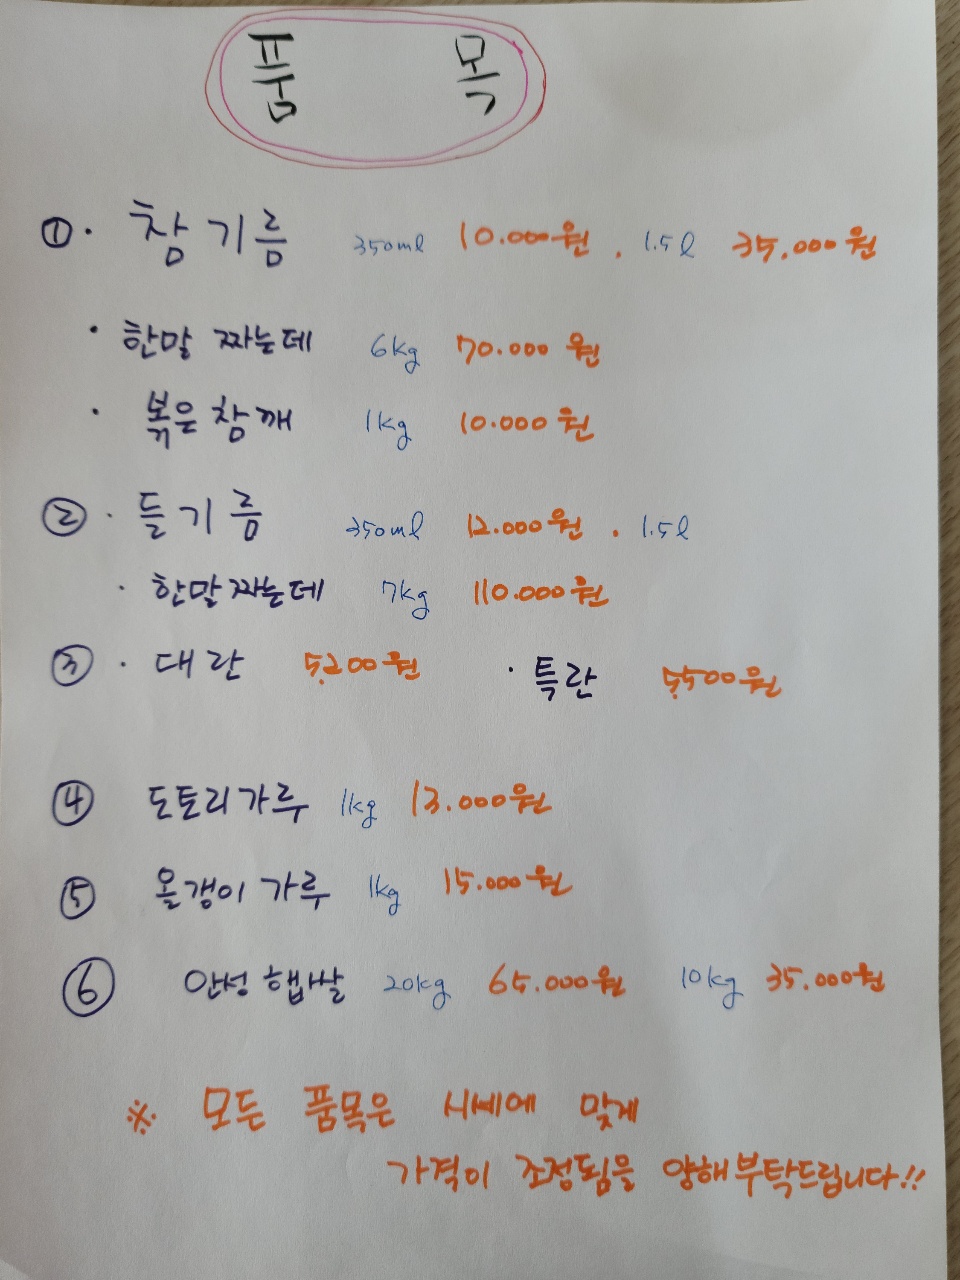 품 목
① · 참기름 350ml 10.000원 . 1.5l 35.000원
· 한말 짜는데 6kg 70.000원
· 볶은참깨 1kg 10.000원
② · 들기름 350ml 12.000원 . 1.5l
· 한말짜는데 7kg 110.000원
③ · 대란 5,200원 · 특란 5,500원
④ 도토리가루 1kg 13.000원
⑤ 올갱이 가루 1kg 15.000원
⑥ 안성 햅쌀 20kg 65.000원 10kg 35.000원
※ 모든 품목은 시세에 맞게
가격이 조정됨을 양해부탁드립니다!!